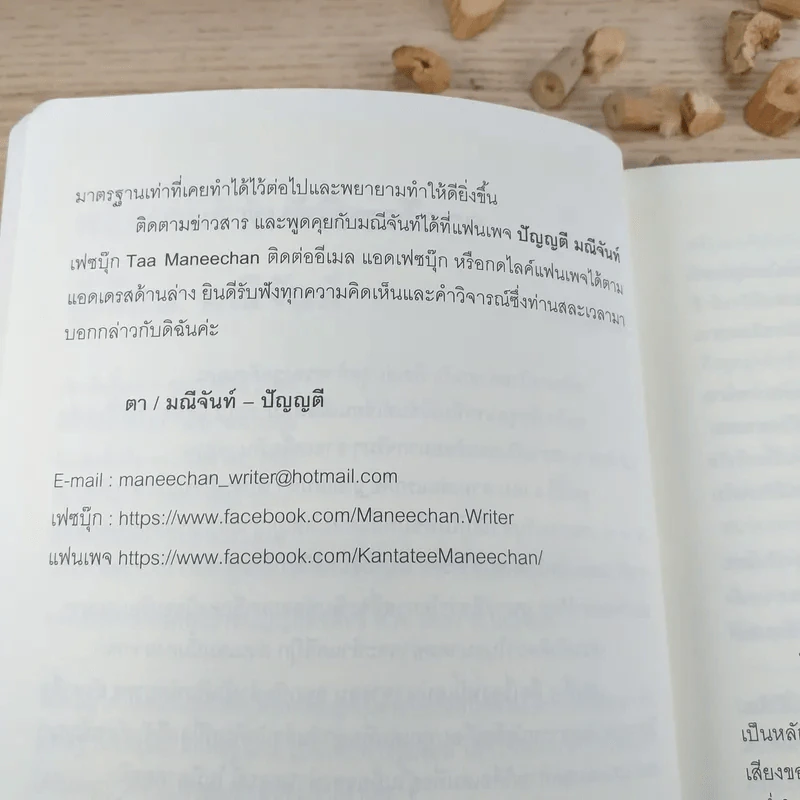 มาตรฐานเท่าที่เคยทำได้ไว้ต่อไปและพยายามทำให้ดียิ่งขึ้น
ติดตามข่าวสาร และพูดคุยกับมณีจันท์ได้ที่แฟนเพจ ปัญญตี มณีจันท์
เฟซบุ๊ก Taa Maneechan ติดต่ออีเมล แอดเฟซบุ๊ก หรือกดไลค์แฟนเพจได้ตาม
แอดเดรสด้านล่าง ยินดีรับฟังทุกความคิดเห็นและคำวิจารณ์ซึ่งท่านสละเวลามา
บอกกล่าวกับดิฉันค่ะ
ตา / มณีจันท์ – ปัญญตี
E-mail : maneechan_writer@hotmail.com
เฟซบุ๊ก : https://www.facebook.com/Maneechan.Writer
แฟนเพจ https://www.facebook.com/KantateeManeechan/
เป็นหลัก
เสียงขอ